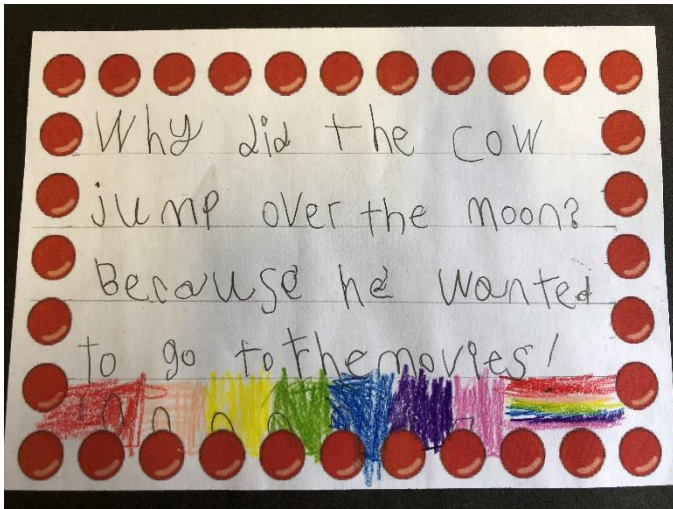 Why did the cow
jump over the moon?
Because he wanted
to go to the movies!